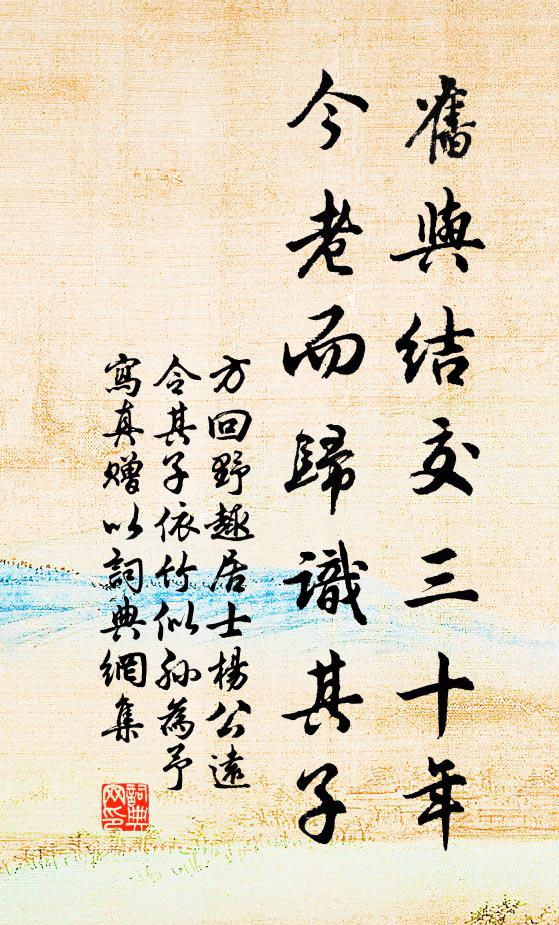 舊與結交三十年
今老而歸識其子
方回野趣居士楊公遠
令其子依竹似孫為予
寫真贈以詞典網集
詞典
网印